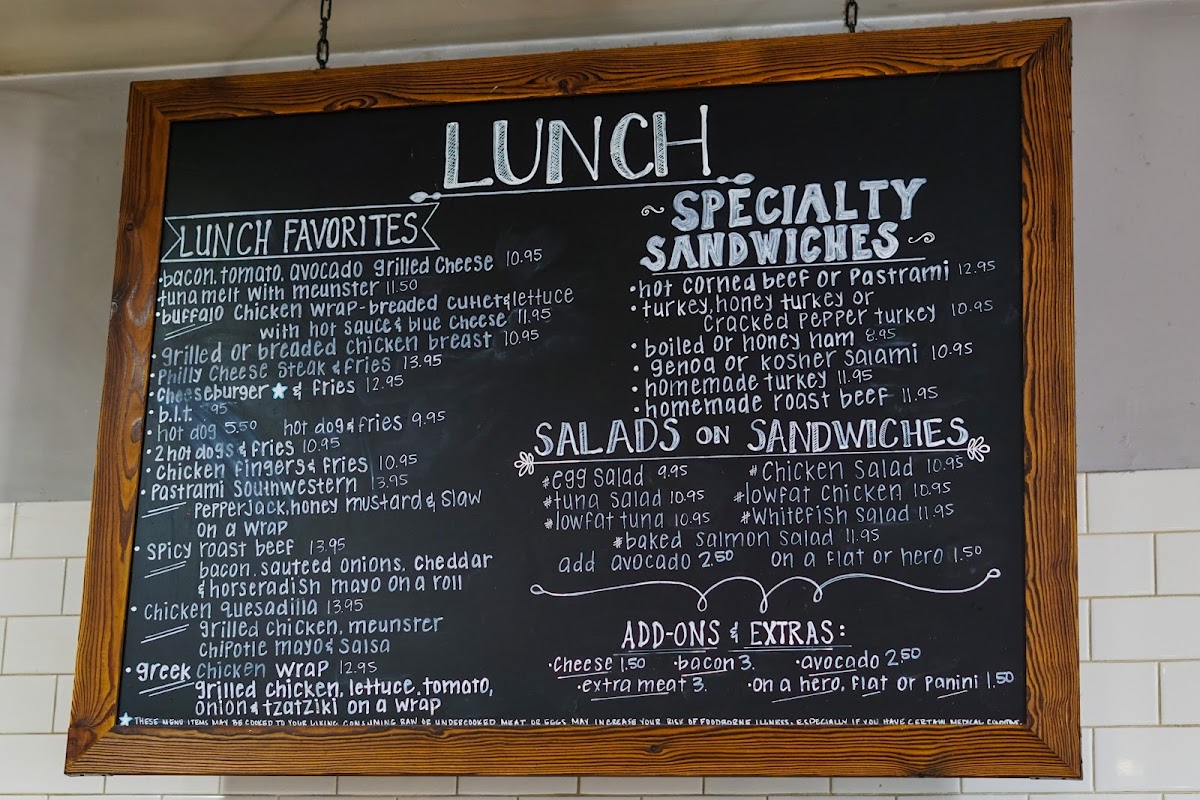 LUNCH
LUNCH FAVORITES
•bacon, tomato, avocado grilled cheese 10.95
tuna melt with meunster 11.50
•buffalo chicken wrap-breaded cutlet & lettuce
with hot sauce & blue cheese 11.95
•grilled or breaded chicken breast 10.95
•philly cheese steak & fries 13.95
•cheeseburger ★ & fries 12.95
•b.l.t. 95
•hot dog 5.50 hot dog & fries 9.95
•2 hot dogs & fries 10.95
•chicken fingers & fries 10.95
•pastrami southwestern 13.95
pepperjack, honey mustard & slaw
on a wrap
•spicy roast beef 13.95
bacon, sauteed onions, cheddar
& horseradish mayo on a roll
•chicken quesadilla 13.95
grilled chicken, meunster
chipotle mayo & salsa
•greek chicken wrap 12.95
grilled chicken, lettuce, tomato,
onion & tzatziki on a wrap
~SPECIALTY
SANDWICHES~
•hot corned beef or pastrami 12.95
•turkey, honey turkey or
cracked pepper turkey 10.95
•boiled or honey ham 8.95
•genoa or kosher salami 10.95
•homemade turkey 11.95
•homemade roast beef 11.95
SALADS ON SANDWICHES
#egg salad 9.95 #chicken salad 10.95
#tuna salad 10.95 #lowfat chicken 10.95
#lowfat tuna 10.95 #whitefish salad 11.95
#baked salmon salad 11.95
add avocado 2.50 on a flat or hero 1.50
ADD-ONS & EXTRAS:
•cheese 1.50 •bacon 3. •avocado 2.50
•extra meat 3. •on a hero, flat or panini 1.50
★THESE MENU ITEMS MAY BE COOKED TO YOUR LIKING. CONSUMING RAW OR UNDERCOOKED MEAT OR EGGS MAY INCREASE YOUR RISK OF FOODBORNE ILLNESS, ESPECIALLY IF YOU HAVE CERTAIN MEDICAL CONDITIONS.